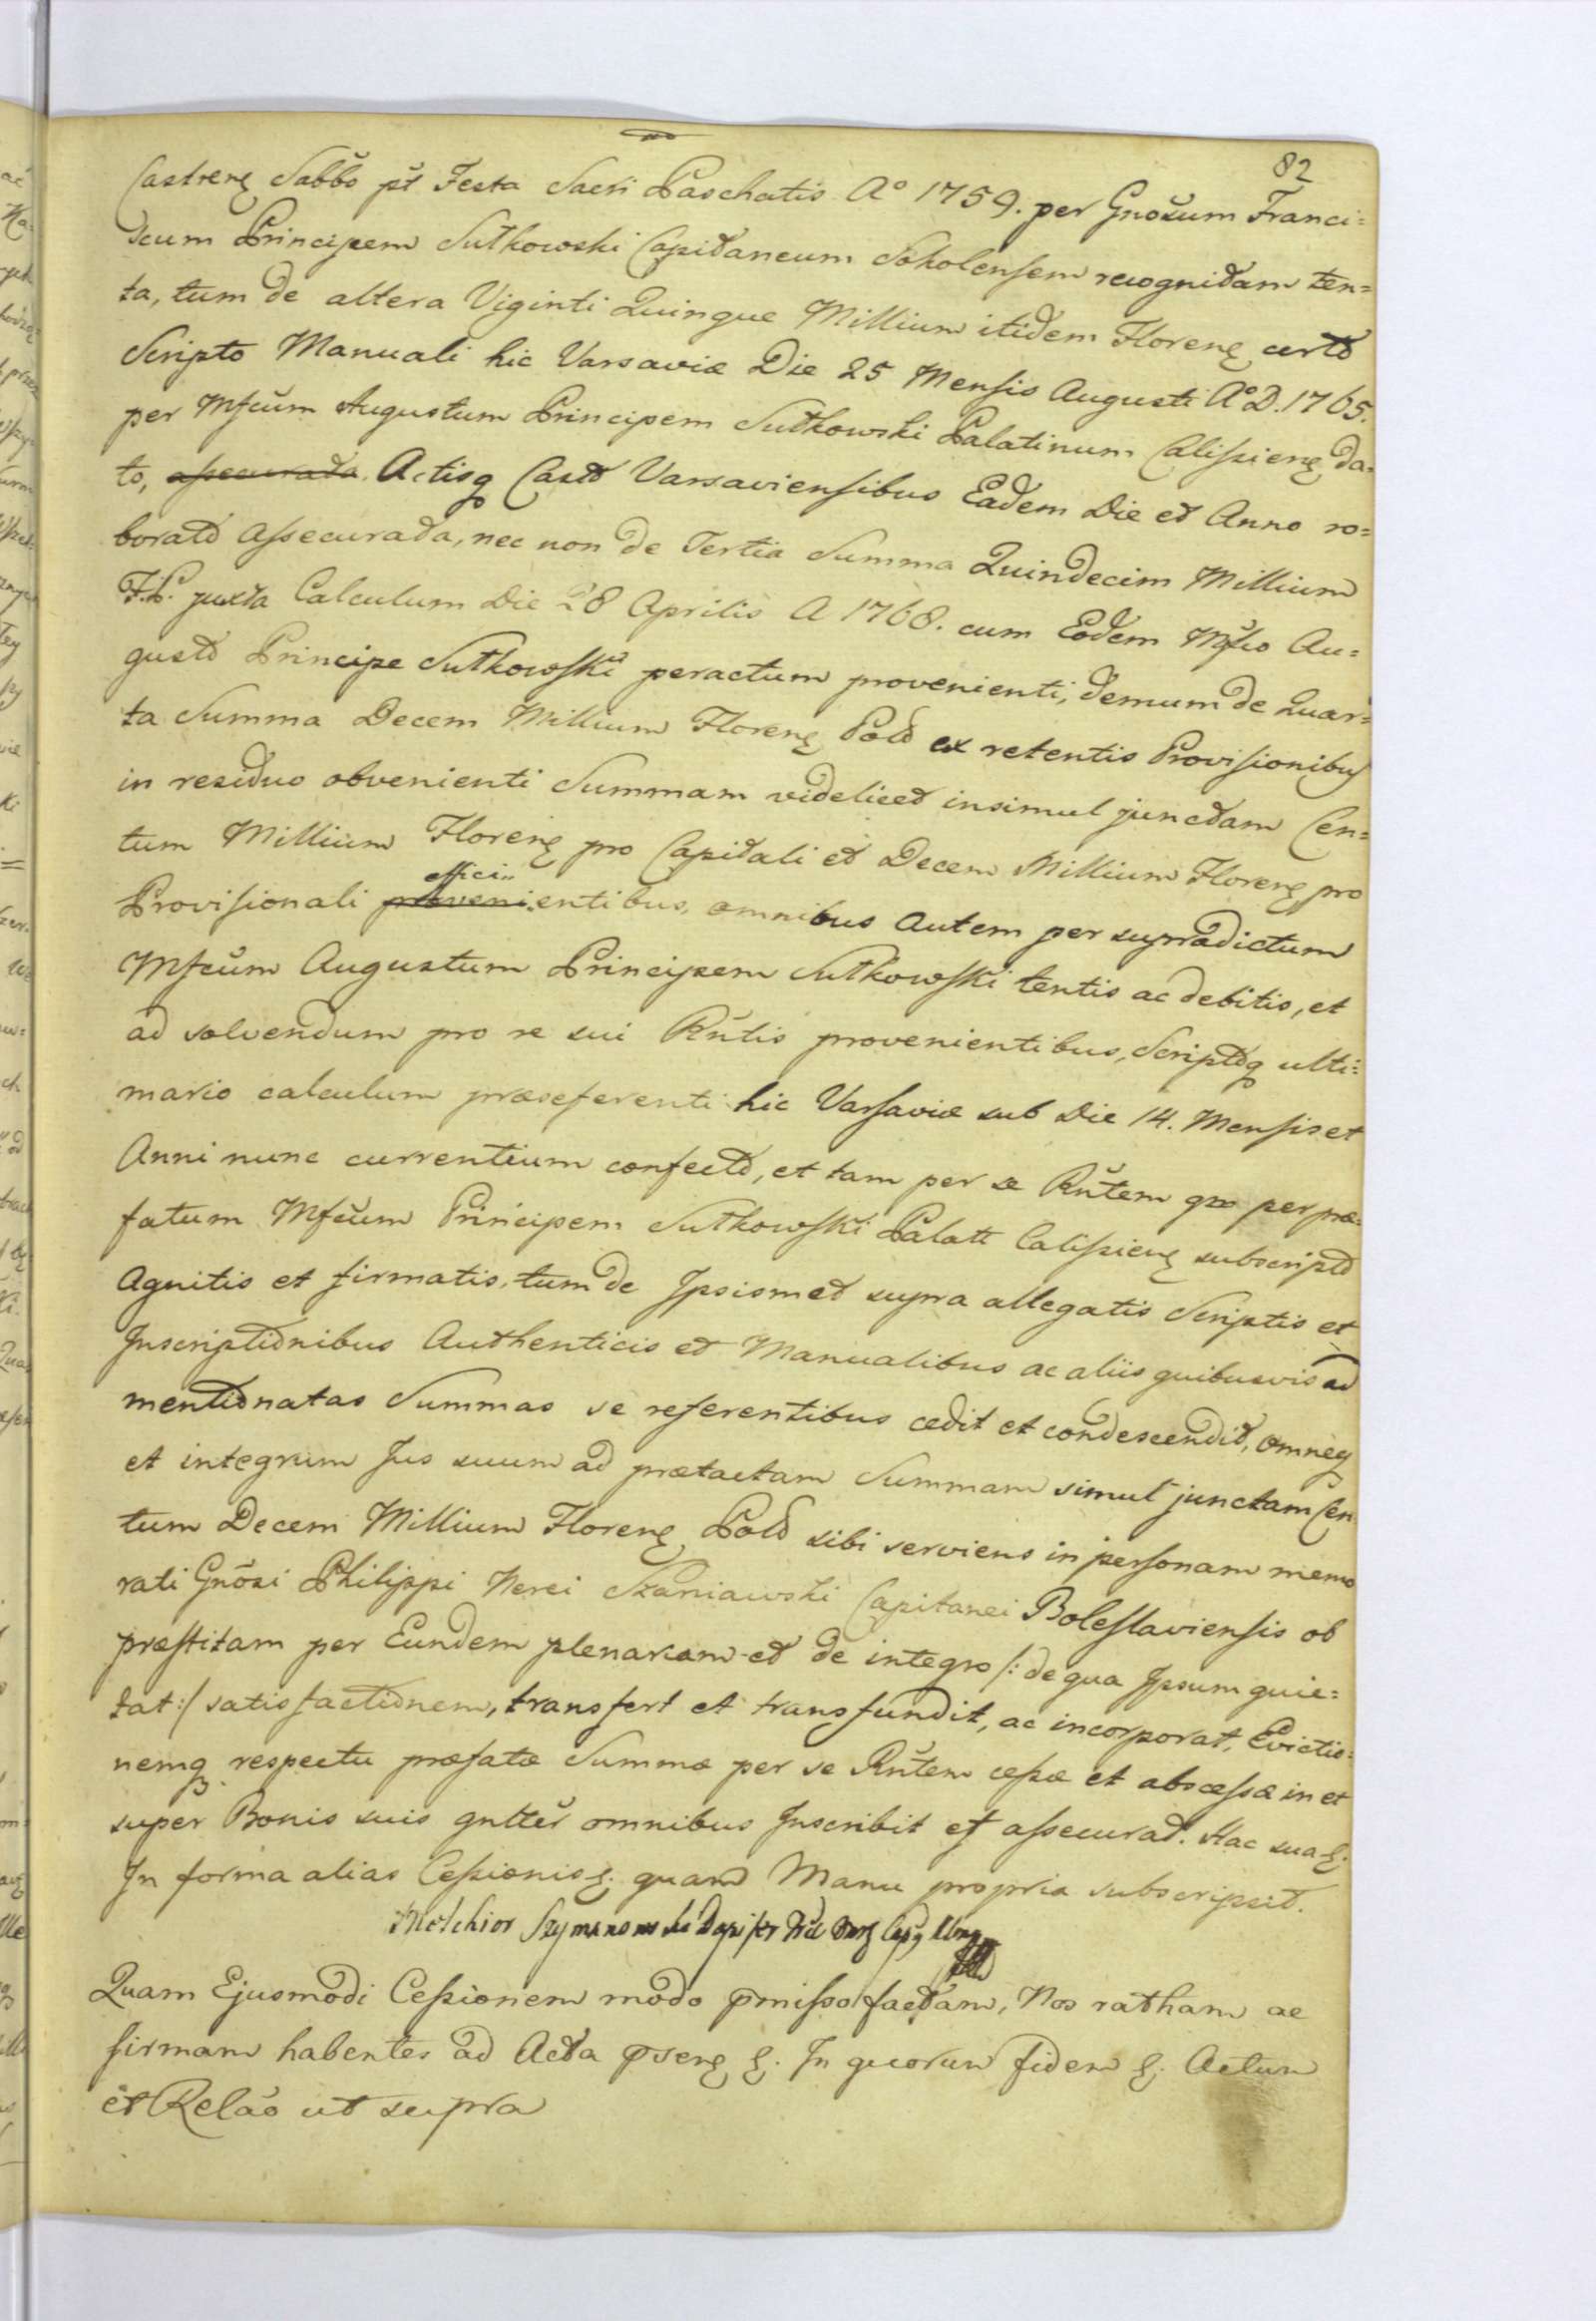 82
Castren̄ Sabbo pt Festa Sacri Paschatis A° 1759. per Gnosum Franci=
scum Principem Sułkowski Capitaneum Sokolensem recognitam ten=
ta, tum de altera Viginti Quinque Millium itidem Floren̄ certo
Scripto Manuali hic Varsaviæ Die 25 Mensis Augusti A°D. 1765.
per Mfcum Augustum Principem Sułkowski Palatinum Calissien̄ da=
to, assecurata Actisq̄ Cast Varsaviensibus Eadem Die et Anno ro=
borato assecurata, nec non de Tertia Summa Quindecim Millium
F.P. juxta Calculum Die 28 Aprilis A 1768. cum Eodem Mfco Au=
gusto Principe Sułkowski peractum provenienti, demum de Quar=
ta Summa Decem Millium Floren̄ Pold ex retentis Provisionibus
in residuo obvenienti Summam videlicet insimul junctam Cen=
tum Millium Floren̄ pro Capitali et Decem Millium Floren̄ pro
effici..
Provisionali provenientibus, omnibus autem per supradictum
Mfcum Augustum Principem Sułkowski tentis ac debitis, et
ad solvendum pro re sui Rntis provenientibus, Scriptoq̄ ulti=
mario calculum præseferenti hic Varsaviæ sub Die 14. Mensis et
Anni nunc currentium confecto, et tam per se Rntem qm per præ=
fatum Mfcum Principem Sułkowski Palatt Calissien̄ subscripto
Agnitis et firmatis, tum de Ipsismet supra allegatis Scriptis et
Inscriptionibus Authenticis et Manualibus ac aliis quibusvis ad
mentionatas Summas se referentibus cedit et condescendit, omneq̄
et integrum Jus suum ad prætactam Summam simul junctam Cen
tum Decem Millium Floren̄ Pold sibi serviens in personam memo
rati Gnosi Philippi Nerei Szaniawski Capitanei Boleslaviensis ob
præstitam per Eundem plenariam et de integro /: de qua Ipsum quie=
tat :/ satisfactionem, transfert et transfundit, ac incorporat, Evictio=
nemq̄ respectu præfatæ Summæ per se Rntem cessæ et abscessæ in et
super Bonis suis gntter omnibus Inscribit et assecurat. Hac sua &.
In forma alias Cessionis &. quam Manu propria subscripsit.
Melchior Szymanowski Dapifer
Quam Ejusmodi Cessionem modo pmisso factam, Nos ratham ac
firmam habentes ad Acta psen̄ &. In quorum fidem &. Actum
et Relao ut supra